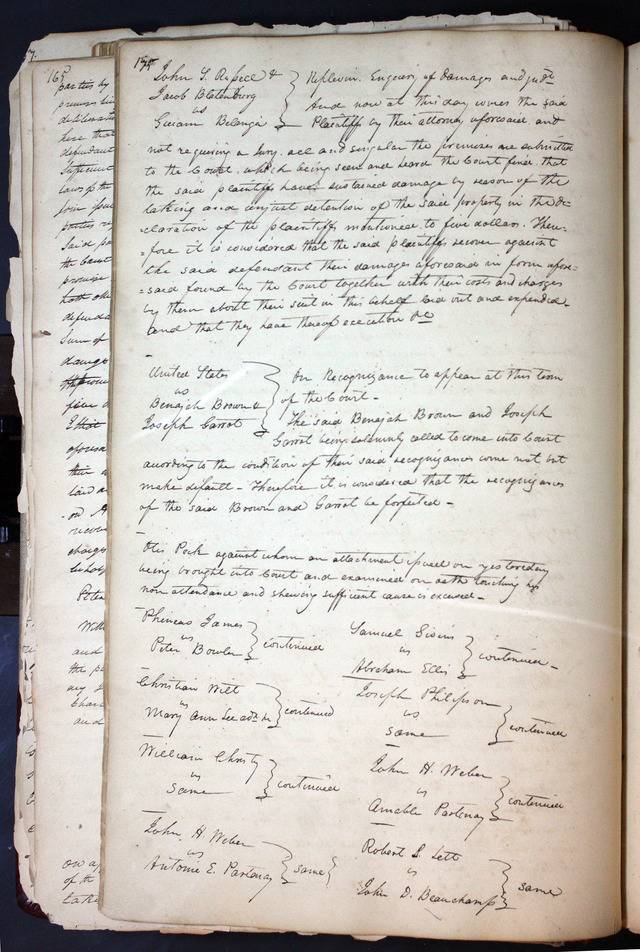 165
parties by
defendant
Said pa
the Court
promise
both
defenda
Sum of
damage
five d
aforesa
laid a
recove
charges
behalf
Peter
Will
and
the pa
any
Char
and
of the
take
John S.
Jacob Blatenburg
vs
Guiam Belangie
Replevin. Enquiry of damages and judt
And now at this day comes the said
Plaintiffs by their attorney aforesaid and
not requiring a Jury, all and singular the premises are submitted
to the Court, which being seen and heard the Court finds that
the said plaintiffs have sustained damage by reason of the
taking and unjust detention of the said property in the de-
-claration of the plaintiffs mentioned to five dollars. There-
-fore it is considered that the said plaintiffs recover against
the said defendant their damages aforesaid in form afore-
-said found by the Court together with their costs and charges
by them about their suit in this behalf laid out and expended.
and that they have thereof execution &c
United States
vs
Benajah Brown &
Joseph Garrot
On Recognizance to appear at this term
of the Court -
The said Benajah Brown and Joseph
Garrot being solemnly called to come into Court
according to the condition of their said recognizances come not but
make default - Therefore it is considered that the recognizances
of the said Brown and Garrot be forfeited -
Otis Peck against whom an attachment issued on yesterday
being brought into Court and examined on oath touching his
non attendance and shewing sufficient cause is excused -
Phineas James
vs
Peter Bowler
continued
Samuel
vs
Abraham Ellis
continued -
Christian Wilt
vs
Mary Ann Lee adx. &c
continued
Joseph Philipson
vs
same
continued
William Christy
vs
same
continued
John H. Weber
vs
Amable Partenay
continued
John H. Weber
vs
Antoine E. Partenay
same
Robert S. Lett
vs
John D. Beauchamp
same